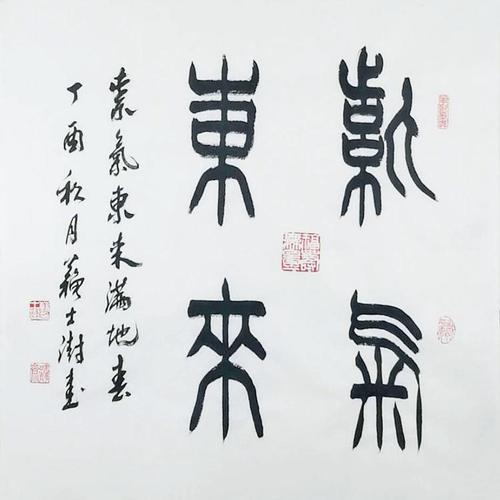 紫氣
東來
紫氣東来滿地春
丁酉秋月蘇士澍書